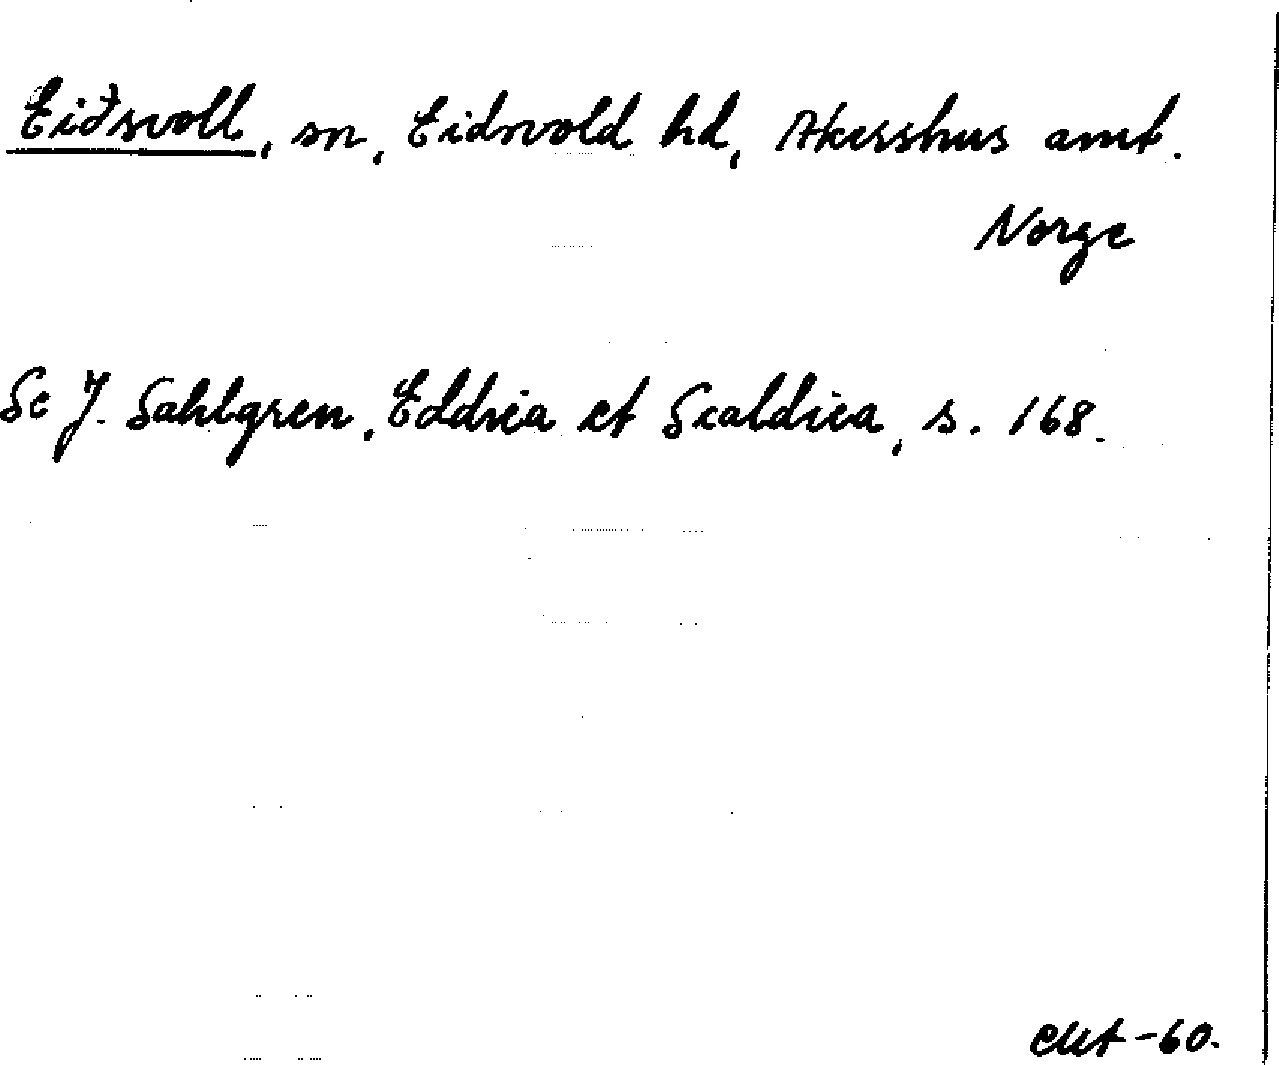 Eiðsvoll, sn, Eidsvold hd, Akershus amt.
Norge
Se J. Sahlgren, Eddica et Scaldica, s. 168.
-60.